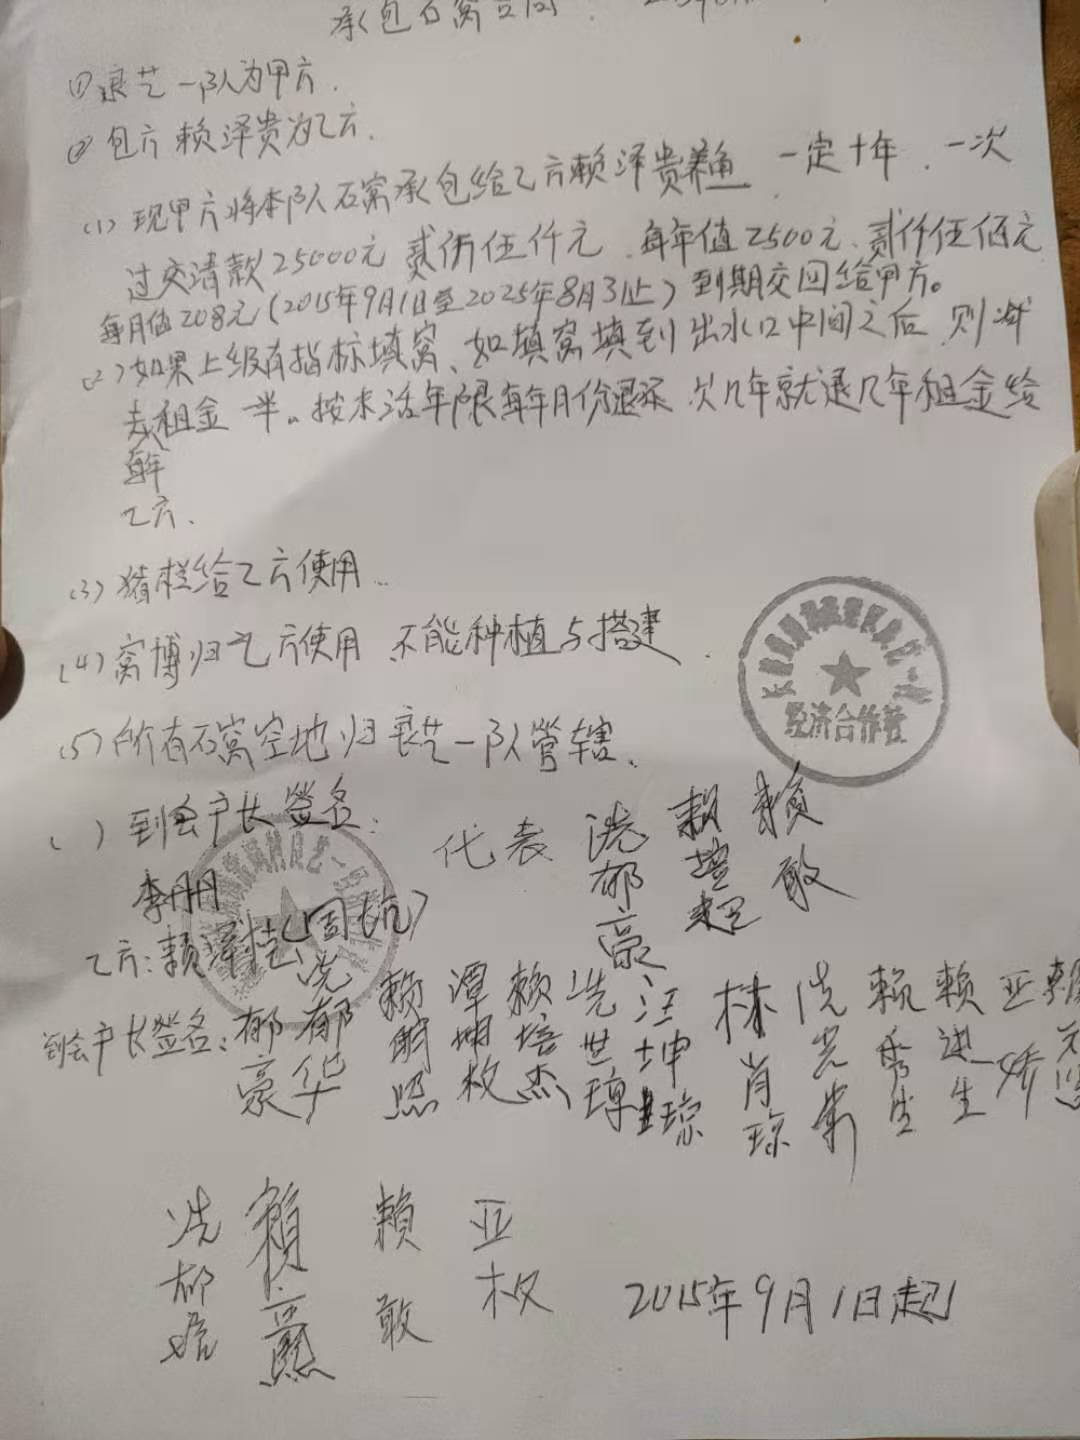 承包石窝合同
① 良艺一队为甲方.
② 包方 赖泽贵为乙方.
(1) 现甲方将本队石窝承包给乙方赖泽贵养鱼 一定十年、一次
过交清款25000元 贰仟伍仟元、每年值2500元、贰仟伍佰元
每月值208元(2015年9月1日至2025年8月31止)到期交回给甲方。
(2) 如果上级有指标填窝、如填窝填到出水口中间之后 则减
去租金一半。按未活年限每年月份退还 欠几年就退几年租金给
乙方.
(3) 猪栏给乙方使用.
(4) 窝博归乙方使用 不能种植与搭建.
(5) 所有石窝空地归良艺一队管辖.
经济合作社
( ) 到会户长签名:
代表 冼郁豪 赖 赖敢
李丹丹
乙方: 赖泽
到会户长签名: 郁豪 冼郁华 赖 照 谭 枚 赖培杰 冼世 汪坤 琼 林肖琼 冼 赖秀生 赖进生 亚娇 赖
冼郁 賴 賴敢 亚权
2015年9月1日起